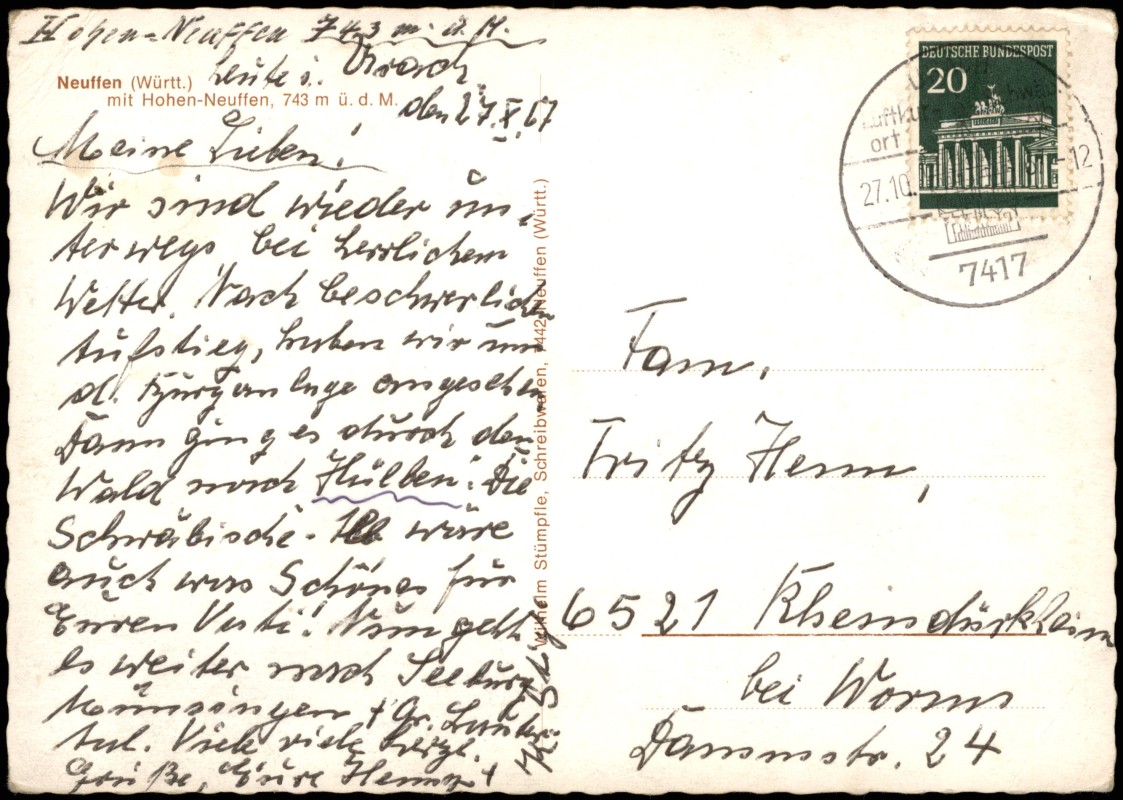 Hohen-Neuffen 743 m. ü. M.
heute i. Urach
den 27.X.67
Neuffen (Württ.)
mit Hohen-Neuffen, 743 m ü. d. M.
Meine Lieben!
Wir sind wieder un-
terwegs bei herrlichem
Wetter. Nach beschwerlichem
Aufstieg, haben wir uns
d. Burganlage angesehen
Dann ging es durch den
Wald nach Hülben. Die
Schwäbische - Alb wäre
auch was Schönes für
Euren Vati! Nun geht
es weiter nach Seeburg
Münsingen + Gr. Lauter-
tal. Viele viele herzl.
Grüße, Eure
Wilhelm Stümpfle, Schreibwaren, 7442 Neuffen (Württ.)
DEUTSCHE BUNDESPOST
20
Luftkur-
ort
27.10. -12
7417
Fam.
Fritz Henn,
6521 Rheindürkheim
bei Worms
Dammstr. 24